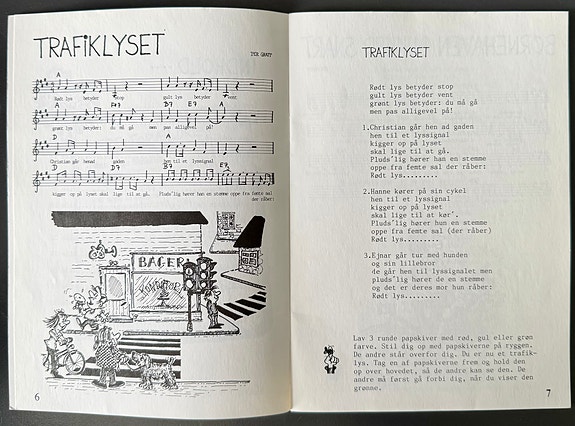 TRAFIKLYSET
PER GRAFF
A
Rødt lys betyder stop gult lys betyder vent
F#7 B7 E7 A
grønt lys betyder: du må gå men pas alligevel på!
D A
Christian går henad gaden hen til et lyssignal
D B7 E7
kigger op på lyset skal lige til at gå. Pluds'lig hører han en stemme oppe fra femte sal
der råber:
BAGER
6
TRAFIKLYSET
Rødt lys betyder stop
gult lys betyder vent
grønt lys betyder: du må gå
men pas alligevel på!
1.Christian går hen ad gaden
hen til et lyssignal
kigger op på lyset
skal lige til at gå.
Pluds'lig hører han en stemme
oppe fra femte sal der råber:
Rødt lys.........
2.Hanne kører på sin cykel
hen til et lyssignal
kigger op på lyset
skal lige til at kør'.
Pluds'lig hører hun en stemme
oppe fra femte sal (der råber)
Rødt lys.........
3.Ejnar går tur med hunden
og sin lillebror
de går hen til lyssignalet men
pluds'lig hører de en stemme
og det er deres mor hun råber:
Rødt lys.........
Lav 3 runde papskiver med rød, gul eller grøn
farve. Stil dig op med papskiverne på ryggen.
De andre står overfor dig. Du er nu et trafik-
lys. Tag en af papskiverne frem og hold den
op over hovedet, så de andre kan se den. De
andre må først gå forbi dig, når du viser den
grønne.
7